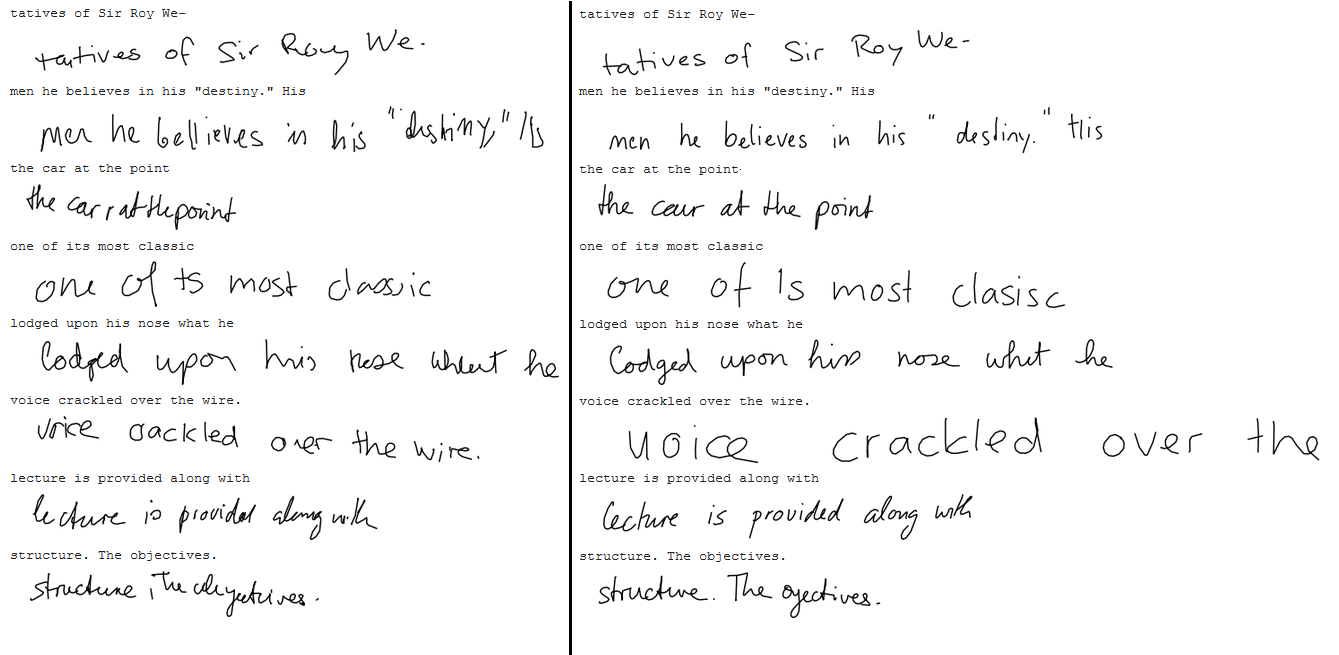 tatives of Sir Roy We-
tatives of Sir Roy We-
men he believes in his "destiny." His
men he bellieves in his "destiny," His
the car at the point
the carr at the porint
one of its most classic
one of ts most classic
lodged upon his nose what he
lodged upon hris nose whlet he
voice crackled over the wire.
vrice crackled over the wire.
lecture is provided along with
lecture is provided along with
structure. The objectives.
structure, The objectives.
tatives of Sir Roy We-
tatives of Sir Roy We-
men he believes in his "destiny." His
men he believes in his " destiny. " His
the car at the point
the caur at the point
one of its most classic
one of 1s most clasisc
lodged upon his nose what he
lodged upon hiss nose whit he
voice crackled over the wire.
uoice crackled over the
lecture is provided along with
lecture is provided along with
structure. The objectives.
structure. The ojectives.